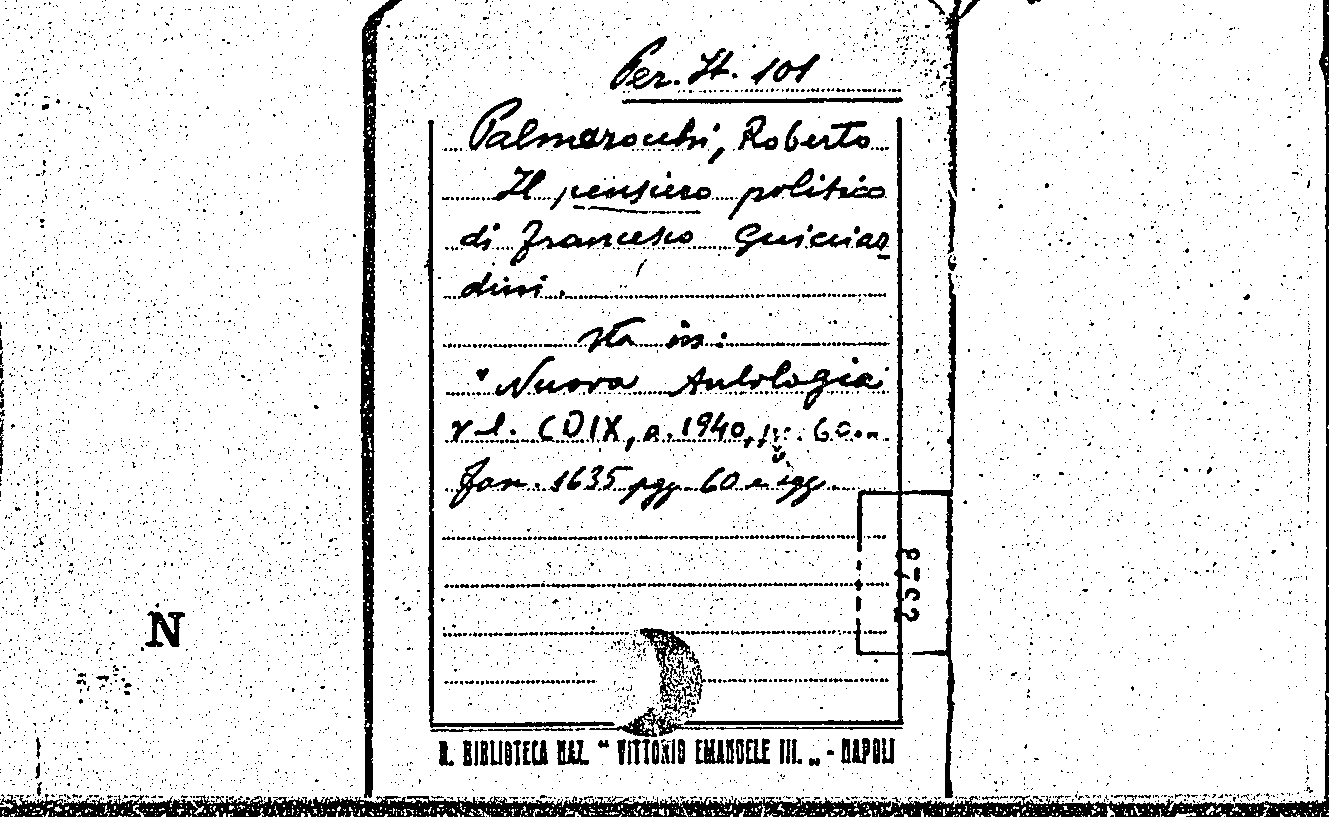 Per. It. 101
Palmarocchi, Roberto
Il pensiero politico
di Francesco Guicciar
dini.
sta in:
"Nuova Antologia
vol. CDIX, a. 1940, 60
Fasc. 1635 pgg. 60 e sgg.
2578
N
R. BIBLIOTECA NAZ. " VITTORIO EMANUELE III. „ - NAPOLI